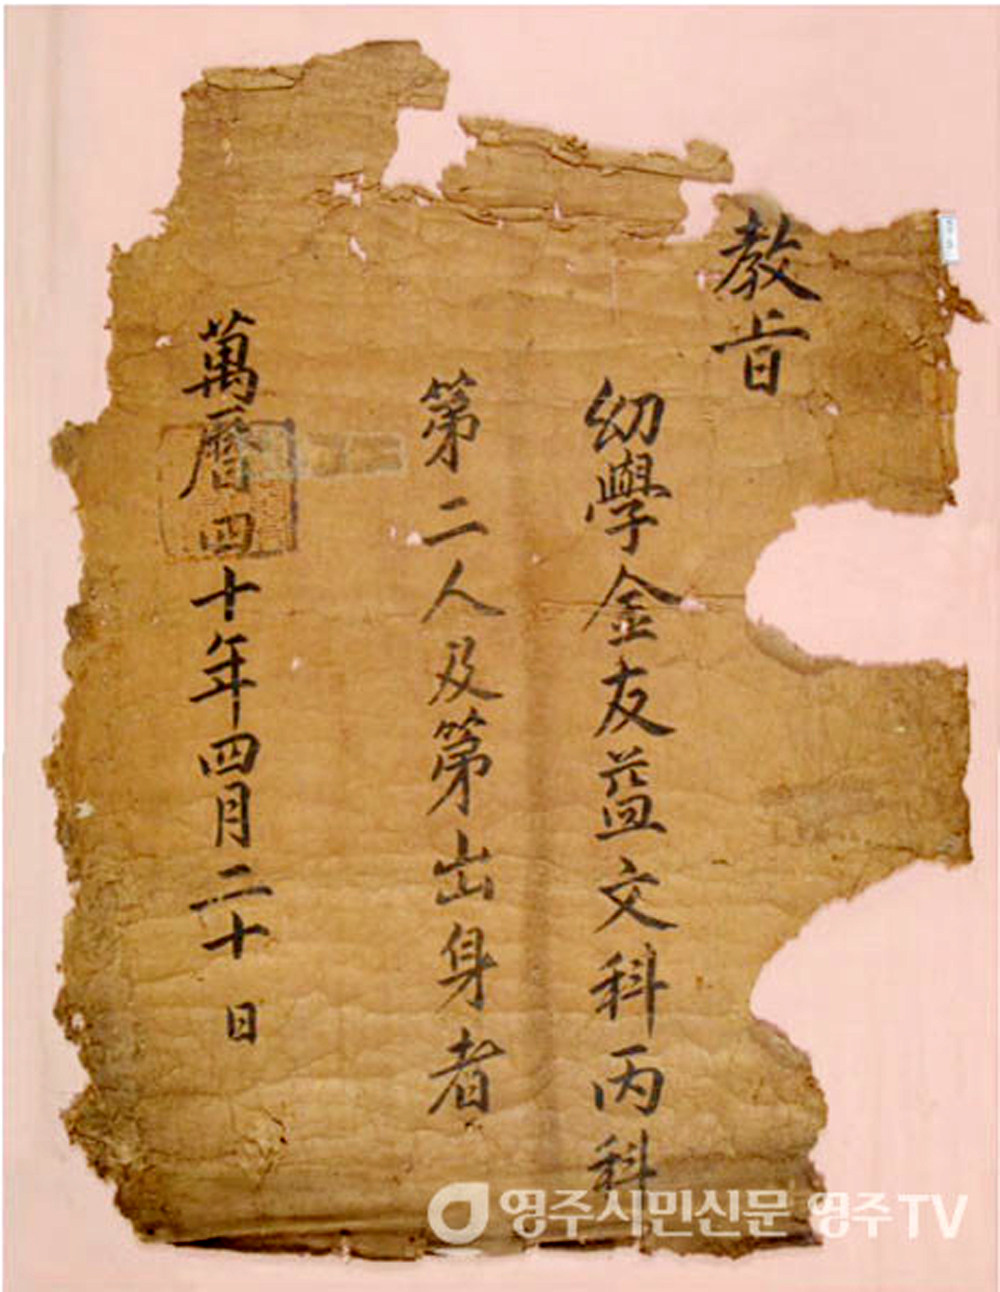 教旨
幼學金友益文科丙科
第二人及第出身者
萬曆四十年四月二十 日
영주시민신문 영주TV